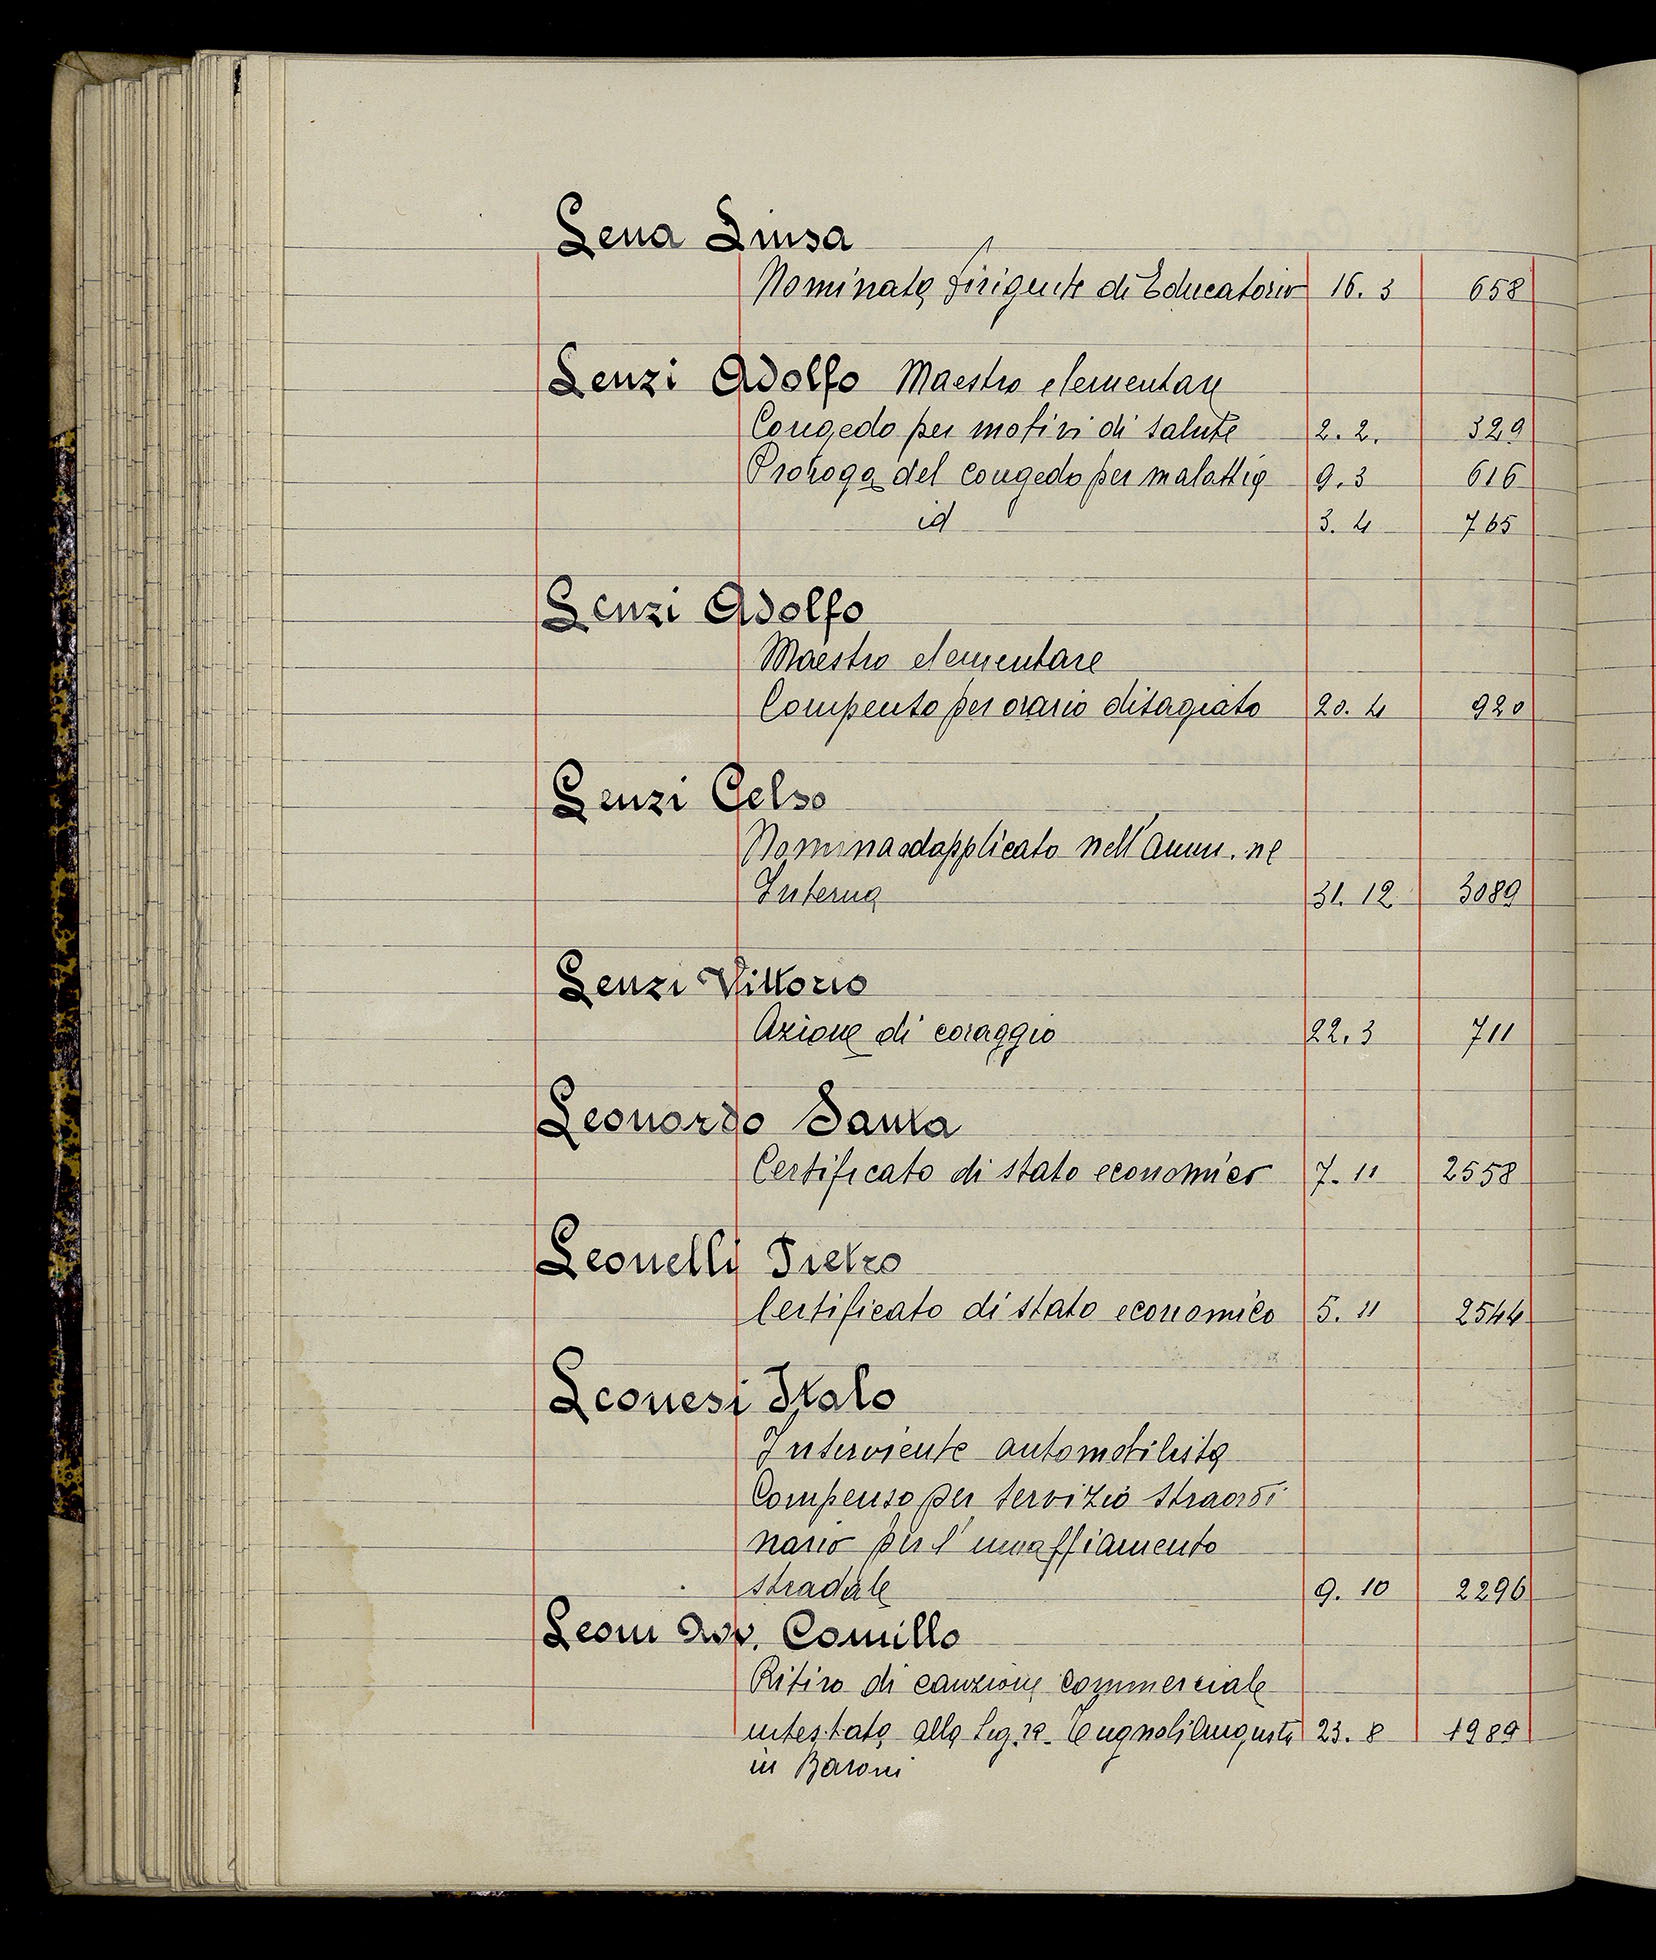 Lena Luisa
Nominata Dirigente di Educatorio 16.3 658
Lenzi Adolfo Maestro elementare
Congedo per motivi di salute 2.2. 329
Proroga del congedo per malattia 9.3 616
id 3.4 765
Lenzi Adolfo
Maestro elementare
Compenso per orario disagiato 20.4 920
Lenzi Celso
Nomina ad applicato nell'Amm.ne
Interna 31.12 3089
Lenzi Vittorio
Azione di coraggio 22.3 711
Leonardo Santa
Certificato di stato economico 7.11 2558
Leonelli Pietro
Certificato di stato economico 5.11 2544
Leonesi Italo
Inserviente automobilista
Compenso per servizio straordi
nario per l'innaffiamento
stradale 9.10 2296
Leoni Avv. Camillo
Ritiro di cauzione commerciale
intestata alla Sig.ra Cugnoli Augusta 23.8 1989
in Baroni